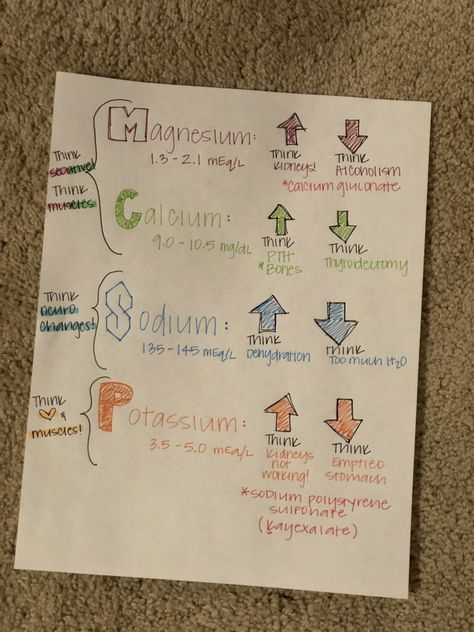 Think
sedative!
Think
muscles
Magnesium:
1.3 - 2.1 mEq/L
Think
Kidneys!
Think
Alcoholism
*Calcium gluconate
Calcium:
9.0 - 10.5 mg/dL
Think
PTH
& Bones
Think
Thyroidectomy
Think
neuro
changes!
Sodium:
135 - 145 mEq/L
Think
Dehydration
Think
Too much H2O
Think
&
muscles!
Potassium:
3.5 - 5.0 mEq/L
Think
Kidneys
not
working!
Think
Emptied
stomach
*Sodium polystyrene
sulfonate
(Kayexalate)